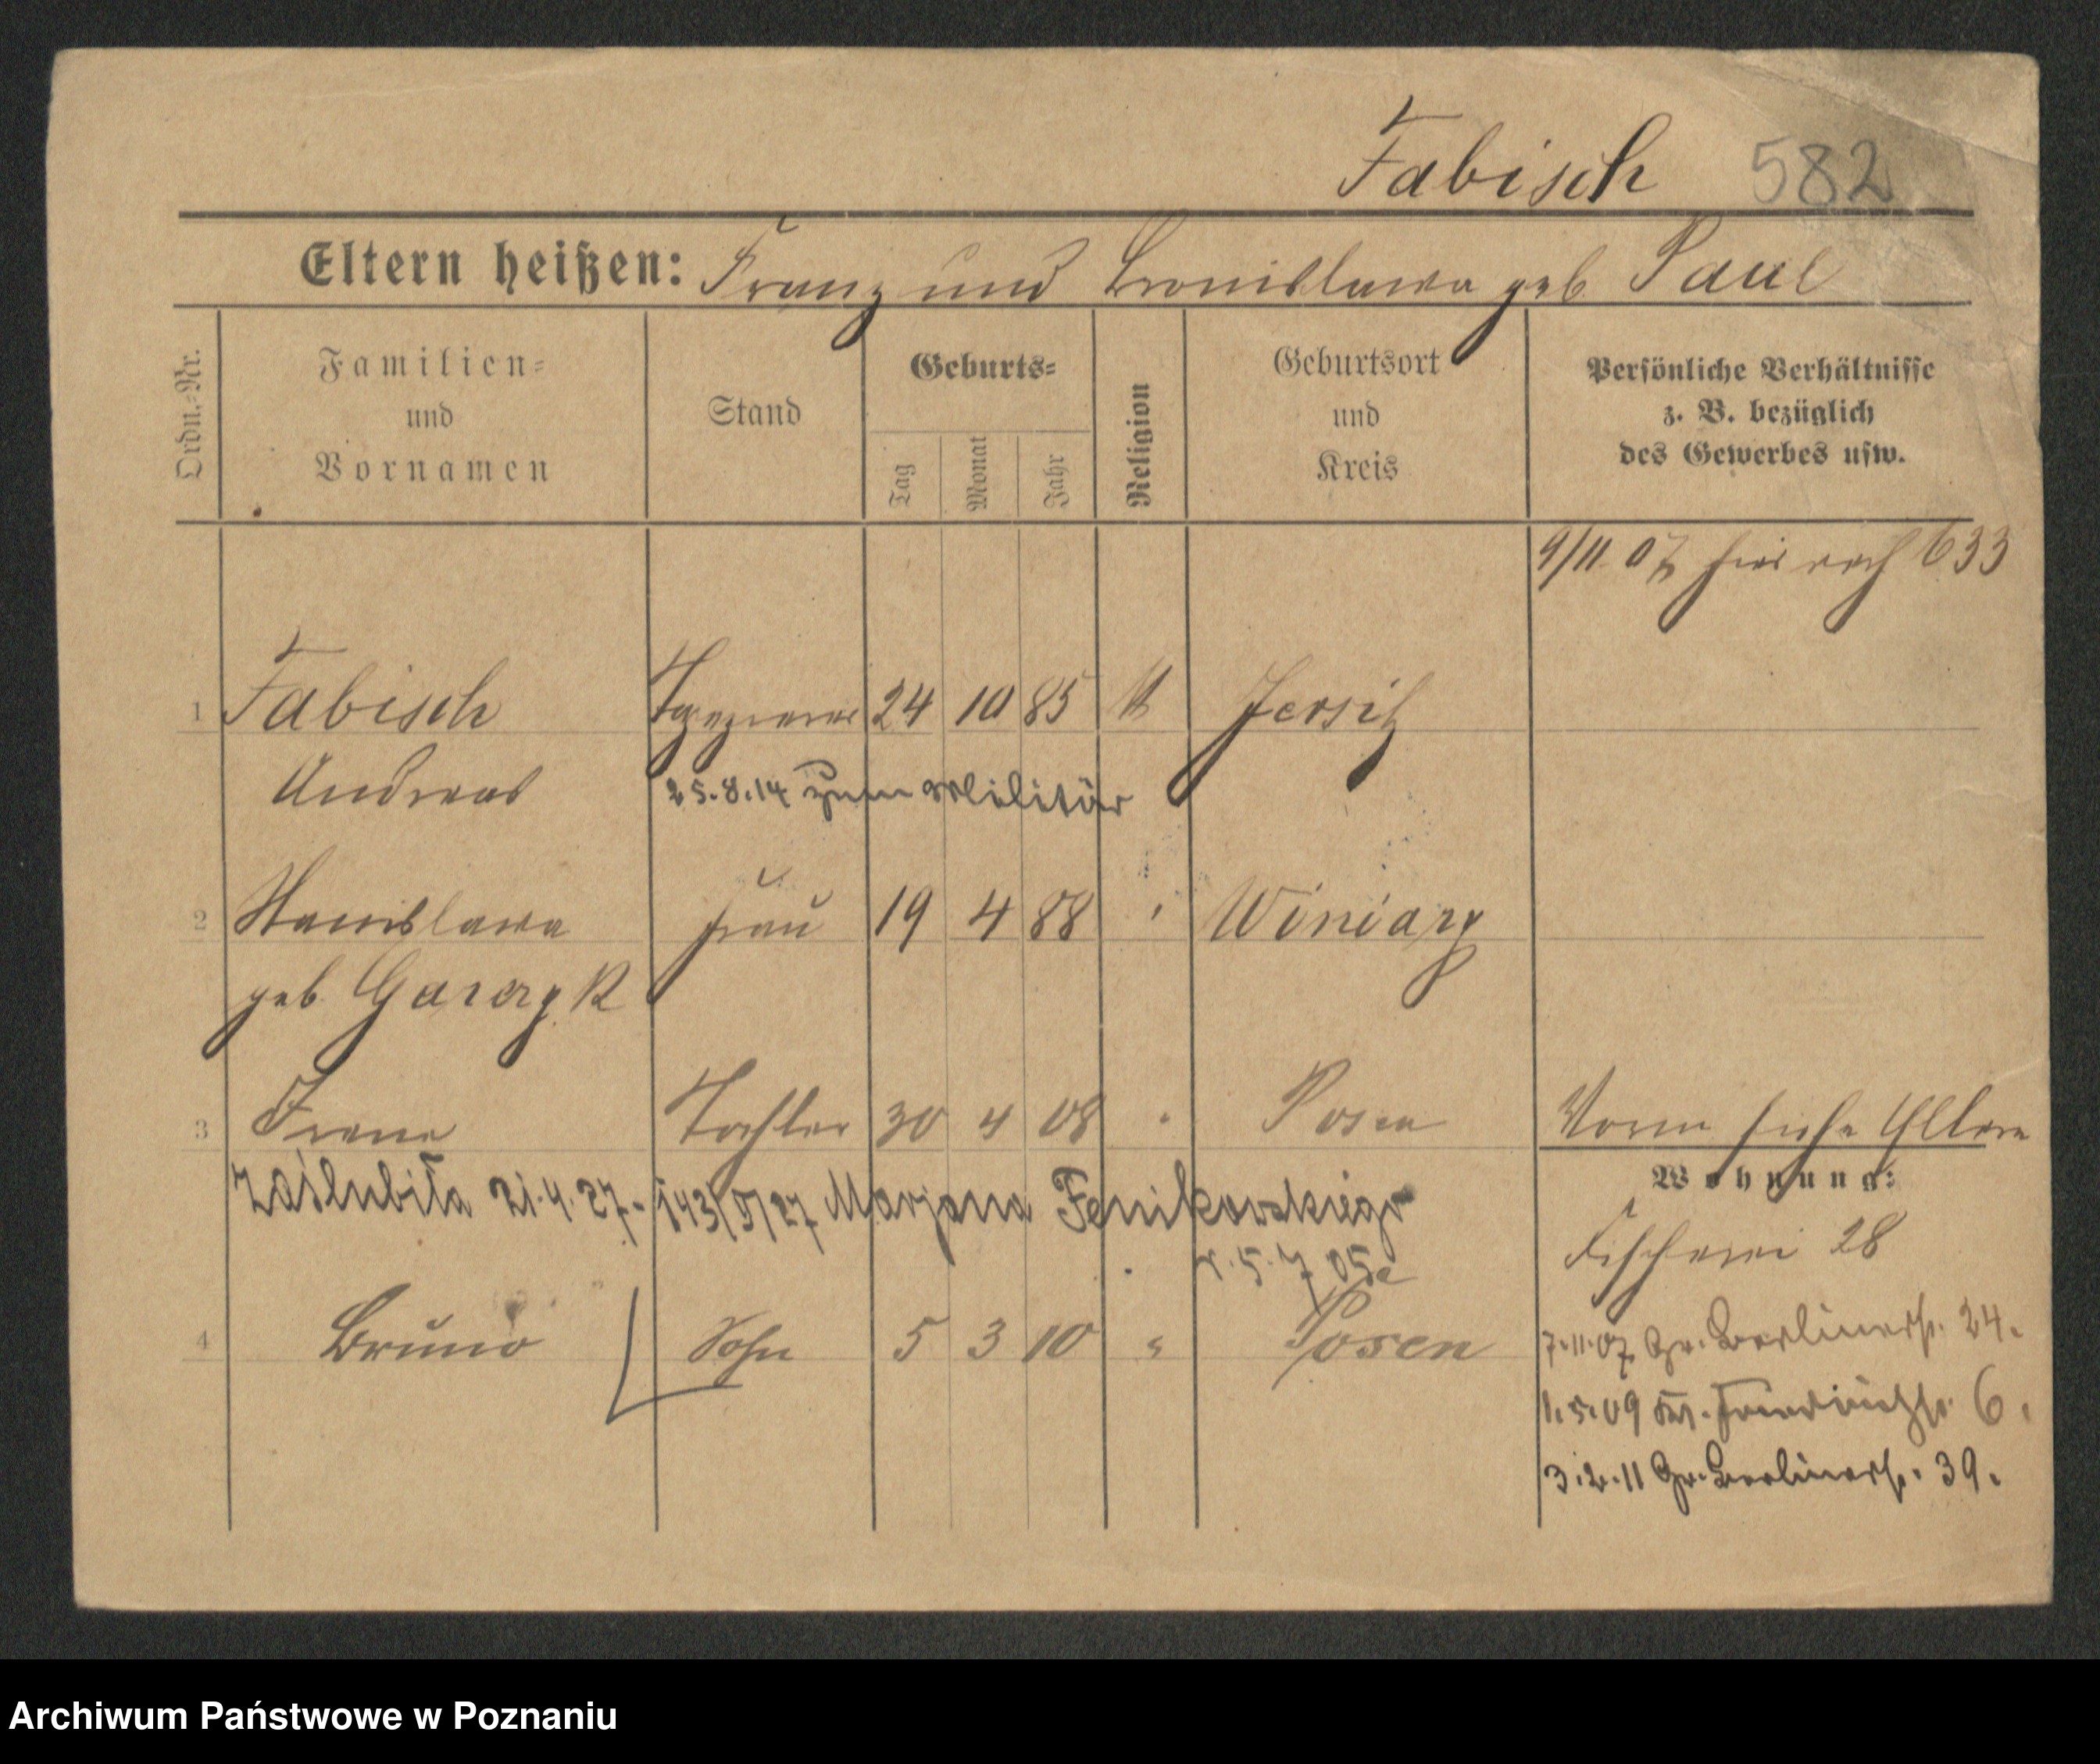 Fabisch 582
Eltern heißen: Franz und Bronislawa geb. Paul
Ordn.-Nr.
Familien-
und
Vornamen
Stand
Geburts-
Tag
Monat
Jahr
Religion
Geburtsort
und
Kreis
Persönliche Verhältnisse
z. B. bezüglich
des Gewerbes usw.
9/11 07 633
1 Fabisch Tapezierer 24 10 85 K Jersitz
Andreas
25.8.14 zum Militär
2 Stanislawa Frau 19 4 88 " Winiary
geb. Garczyk
3 Irene Tochter 30 4 08 " Posen
Vorm. siehe Eltern
zaślubiła 21.4.27. 143/5/27 Marjana Fenikowskiego
r. 5. 7 05
4 Bruno Sohn 5 3 10 " Posen
Wohnung:
Fischerei 28
7.11.07 Gr. Berlinerstr. 24.
1.5.09 Kl. 6.
3.2.11 Gr. Berlinerstr. 39.
Archiwum Państwowe w Poznaniu